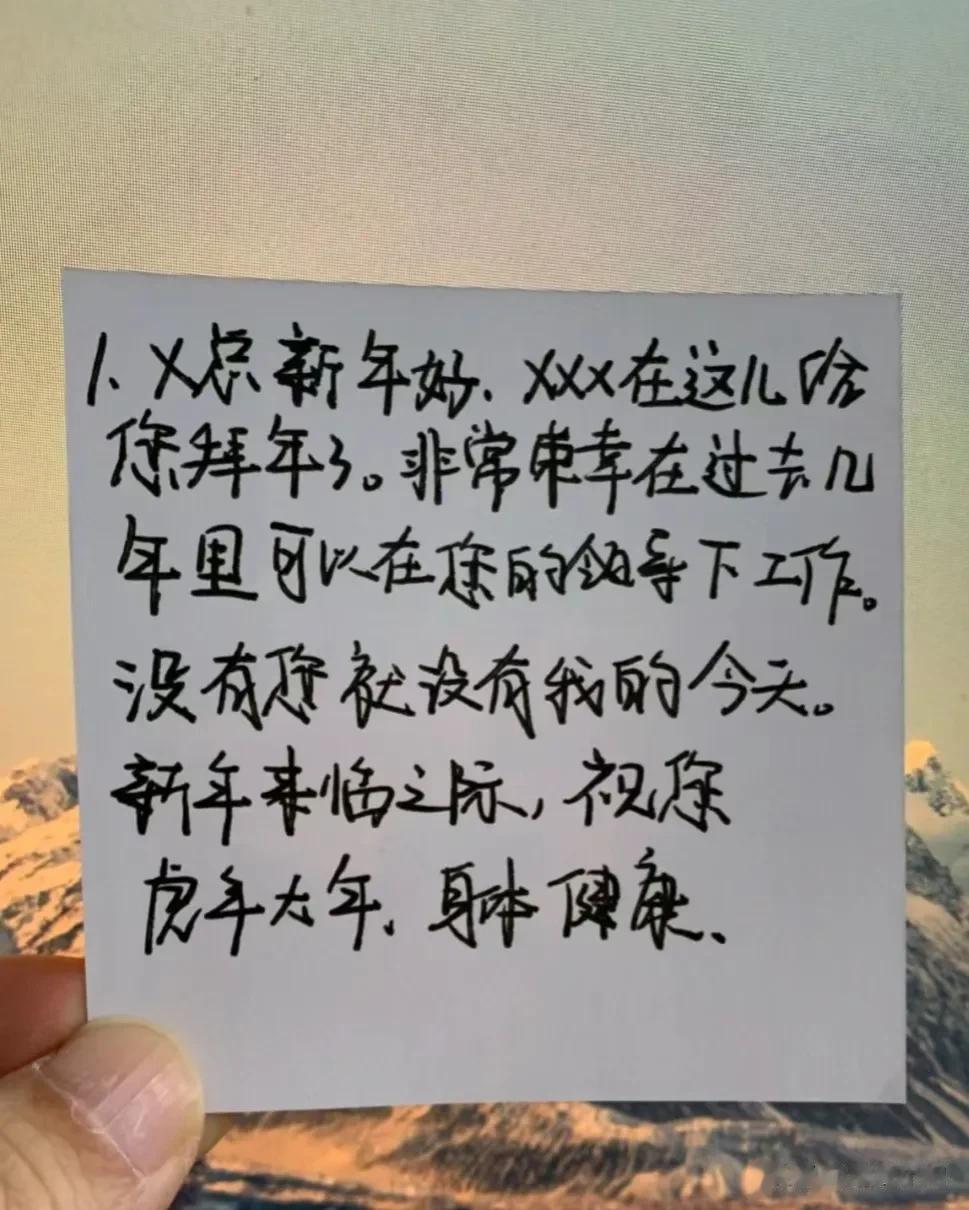 1、X总新年好、XXX在这儿给
您拜年了。非常荣幸在过去几
年里可以在您的领导下工作。
没有您就没有我的今天。
新年来临之际,祝您
虎年大年、身体健康、